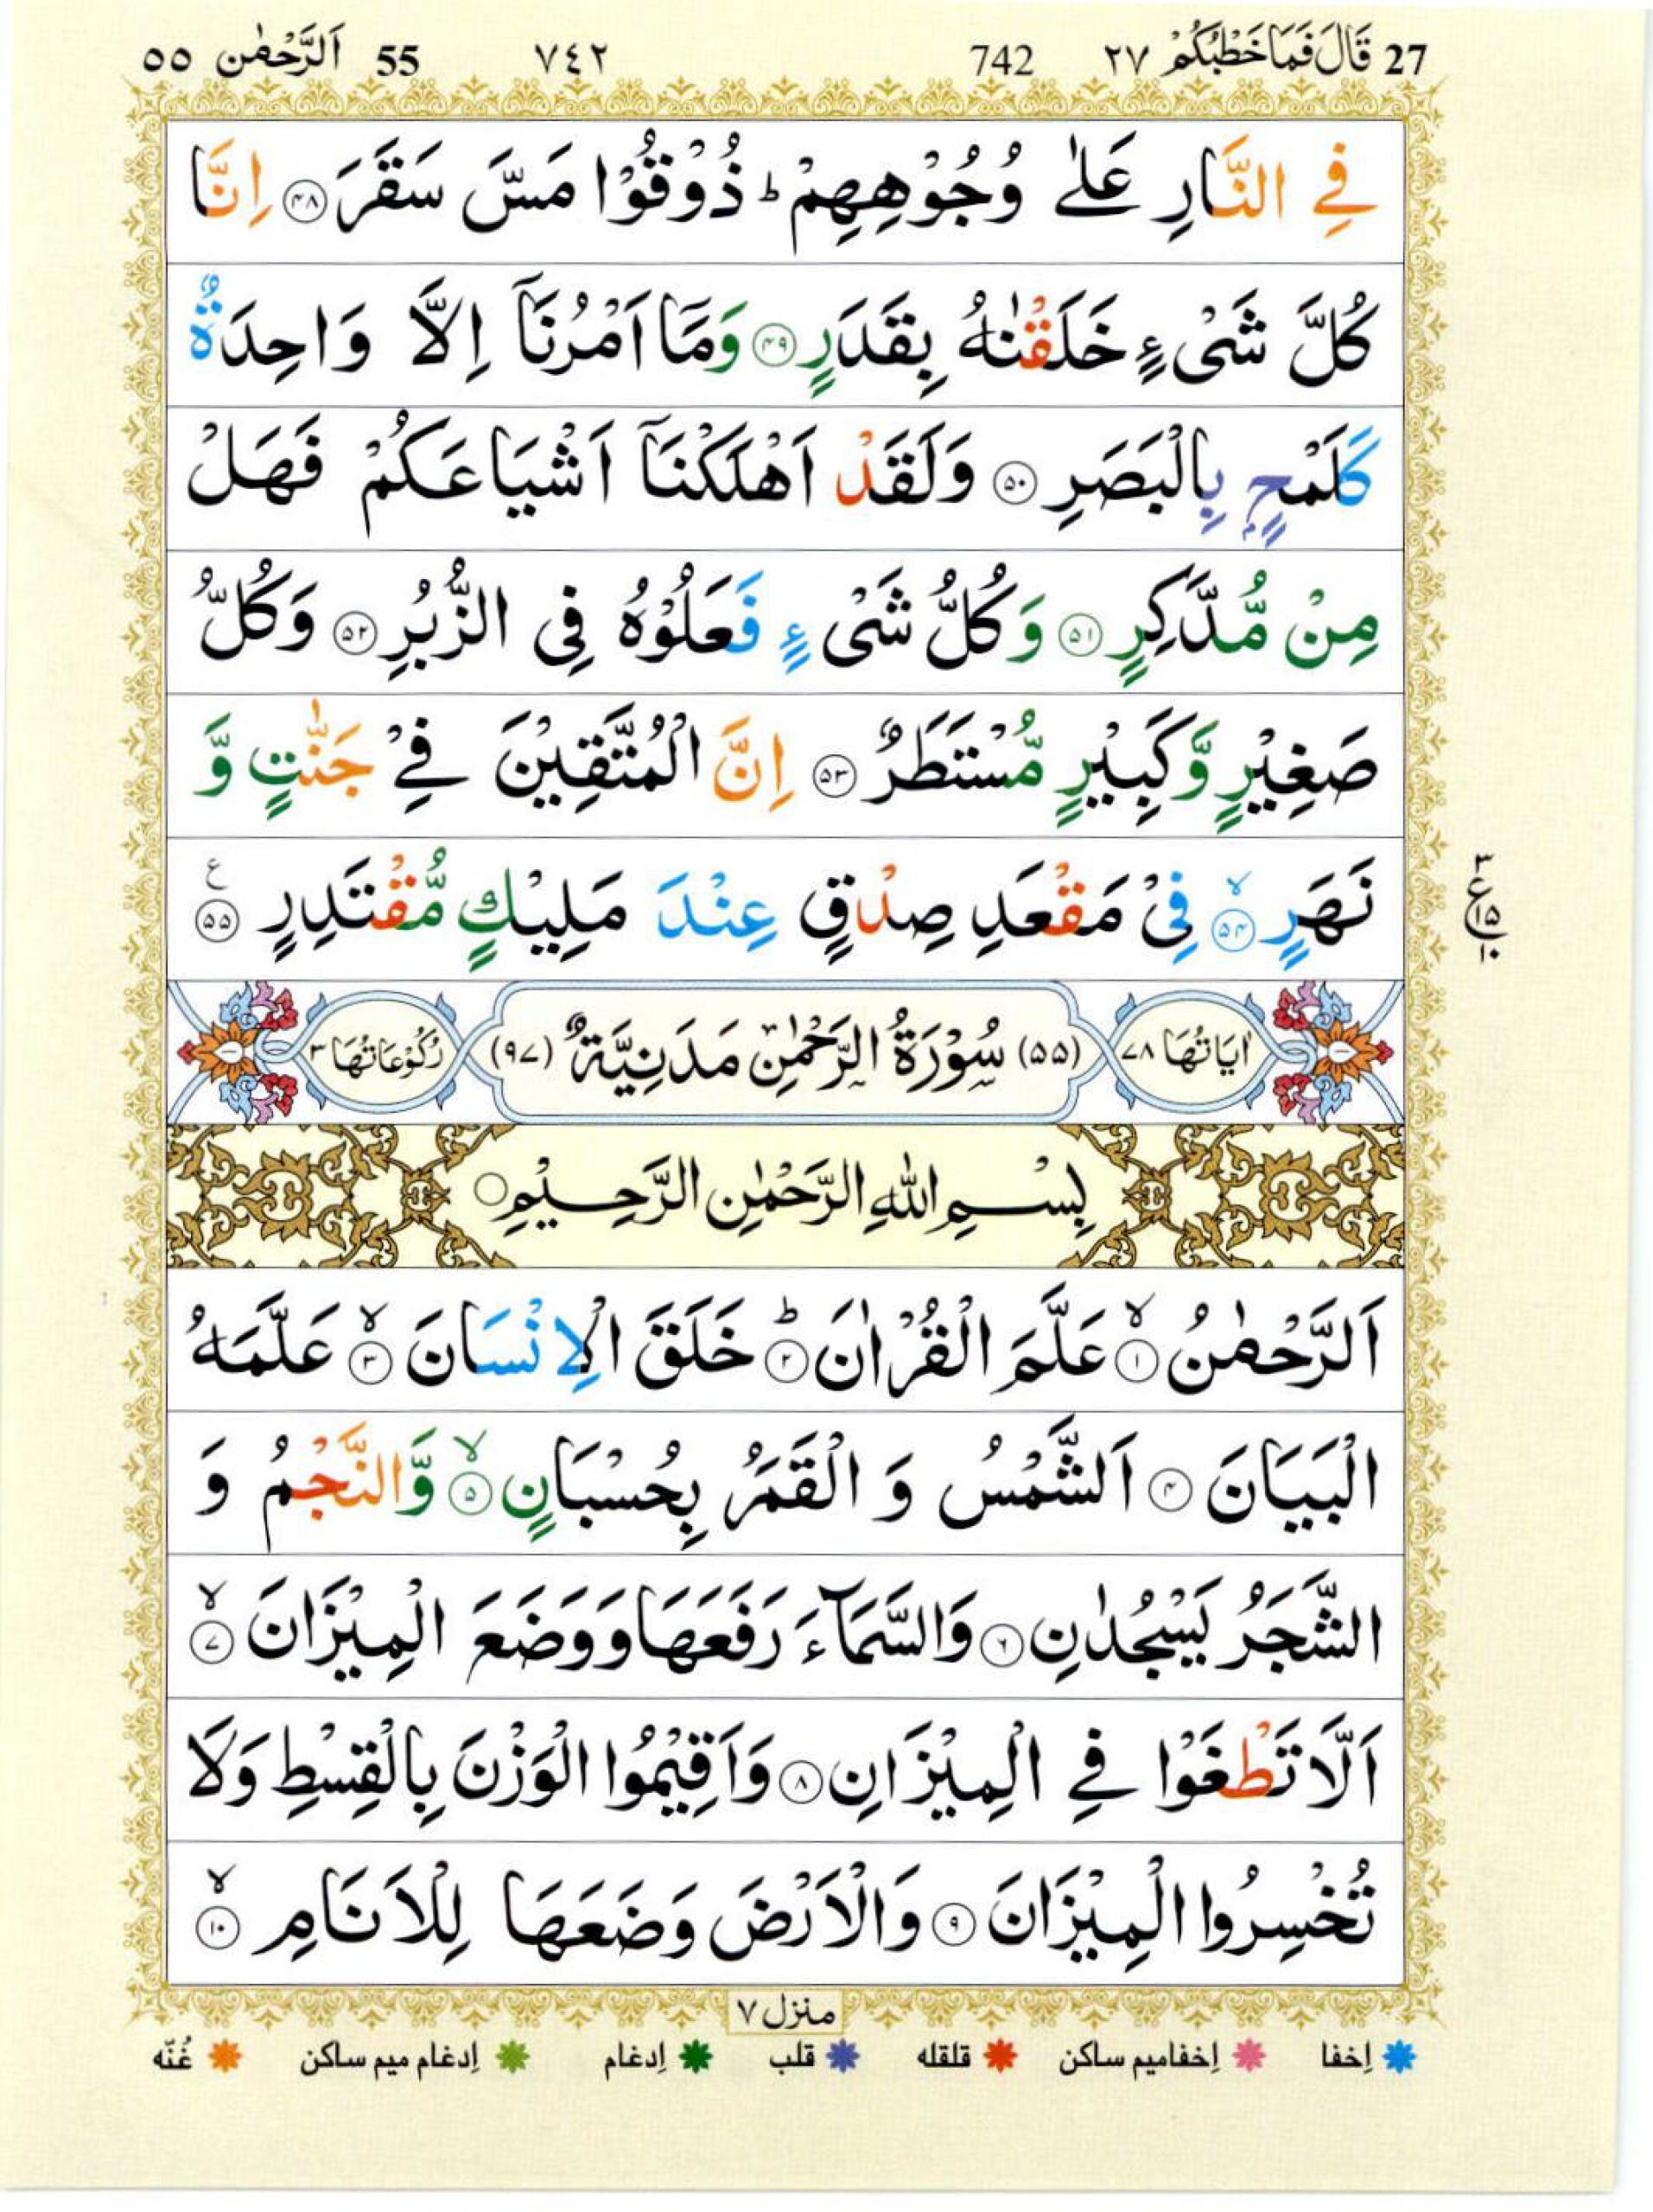 27 قَالَ فَمَا خَطْبُكُمْ ٢٧ 742 ٧٤٢ 55 اَلرَّحْمٰن ٥٥
فِي النَّارِ عَلٰى وُجُوْهِهِمْ ؕ ذُوْقُوْا مَسَّ سَقَرَ ﴿۴۸﴾ اِنَّا
كُلَّ شَىْءٍ خَلَقْنٰهُ بِقَدَرٍ ﴿۴۹﴾ وَمَاۤ اَمْرُنَاۤ اِلَّا وَاحِدَةٌ
كَلَمْحٍۭ بِالْبَصَرِ ﴿۵۰﴾ وَلَقَدْ اَهْلَكْنَاۤ اَشْيَاعَكُمْ فَهَلْ
مِنْ مُّدَّكِرٍ ﴿۵۱﴾ وَكُلُّ شَىْءٍ فَعَلُوْهُ فِى الزُّبُرِ ﴿۵۲﴾ وَكُلُّ
صَغِيْرٍ وَّكَبِيْرٍ مُّسْتَطَرٌ ﴿۵۳﴾ اِنَّ الْمُتَّقِيْنَ فِيْ جَنّٰتٍ وَّ
نَهَرٍ ۙ﴿۵۴﴾ فِىْ مَقْعَدِ صِدْقٍ عِنْدَ مَلِيْكٍ مُّقْتَدِرٍ ﴿۵۵﴾ ع
٣ ع ١٥ ١٠
اٰيَاتُهَا ٧٨ (٥٥) سُوْرَةُ الرَّحْمٰنِ مَدَنِيَّةٌ (٩٧) رُكُوْعَاتُهَا ٣
بِسْمِ اللّٰهِ الرَّحْمٰنِ الرَّحِيْمِ
اَلرَّحْمٰنُ ۙ﴿۱﴾ عَلَّمَ الْقُرْاٰنَ ؕ﴿۲﴾ خَلَقَ الْاِنْسَانَ ۙ﴿۳﴾ عَلَّمَهُ
الْبَيَانَ ﴿۴﴾ اَلشَّمْسُ وَ الْقَمَرُ بِحُسْبَانٍ ۙ﴿۵﴾ وَّالنَّجْمُ وَ
الشَّجَرُ يَسْجُدٰنِ ﴿۶﴾ وَالسَّمَآءَ رَفَعَهَا وَوَضَعَ الْمِيْزَانَ ۙ﴿۷﴾
اَلَّا تَطْغَوْا فِي الْمِيْزَانِ ﴿۸﴾ وَاَقِيْمُوا الْوَزْنَ بِالْقِسْطِ وَلَا
تُخْسِرُوا الْمِيْزَانَ ﴿۹﴾ وَالْاَرْضَ وَضَعَهَا لِلْاَنَامِ ۙ﴿۱۰﴾
منزل ٧
اِخفا اِخفامیم ساکن قلقله قلب اِدغام اِدغام میم ساکن غُنّه